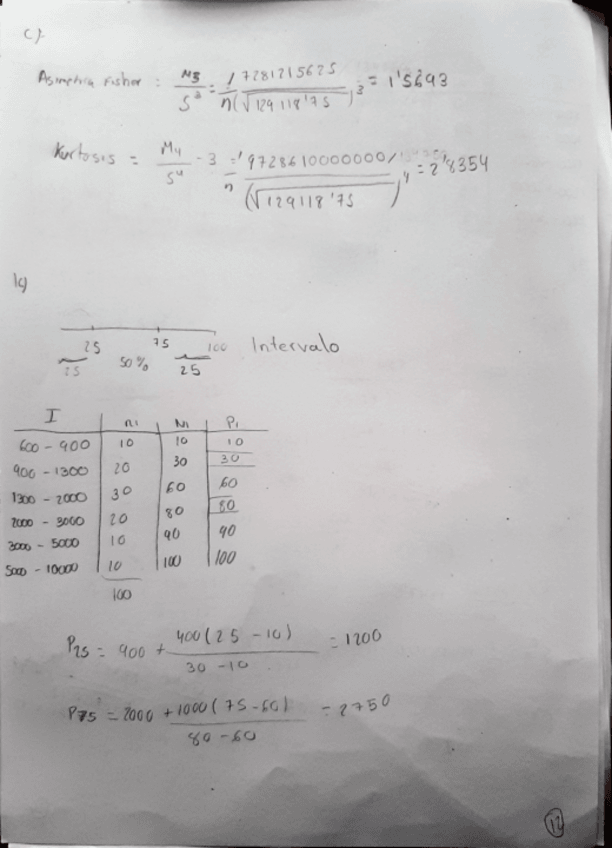 c).
Asimetria Fisher : M3 / S³ = 1/n 7281215625 / (√129118'75)³ = 1'5693
Kurtosis = M4 / S⁴ - 3 = 1/n 9728610000000 / (√129118'75)⁴ = 2'8354
16)
25 75 100 Intervalo
25 50% 25
I ni Ni Pi
600 - 900 10 10 10
900 - 1300 20 30 30
1300 - 2000 30 60 60
2000 - 3000 20 80 80
3000 - 5000 10 90 90
5000 - 10000 10 100 100
100
P25 = 900 + 400(25 - 10) / 30 - 10 = 1200
P75 = 2000 + 1000(75 - 60) / 80 - 60 = 2750
12